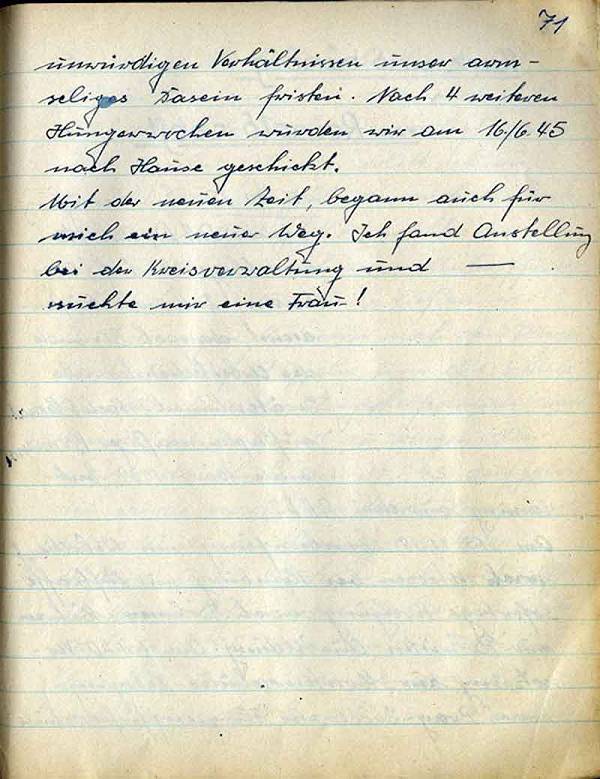 71
unwürdigen Verhältnissen unser arm-
seliges Dasein fristen. Nach 4 weiteren
Hungerwochen wurden wir am 16./6.45
nach Hause geschickt.
Mit der neuen Zeit, begann auch für
mich ein neuer Weg. Ich fand Anstellung
bei der Kreisverwaltung und —
suchte mir eine Frau!